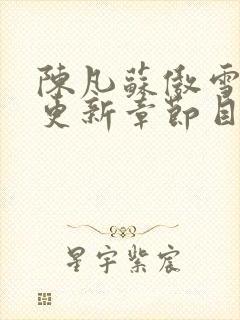 陳凡蘇傲雪
更新章節目
星宇紫宸